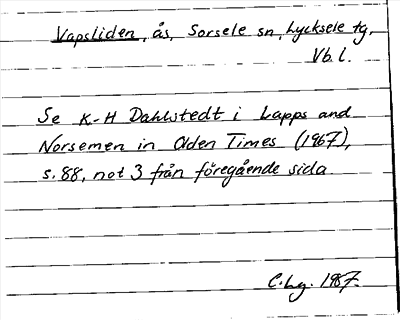 Vapsliden, ås, Sorsele sn, Lycksele tg,
Vb. l.
Se K-H Dahlstedt i Lapps and
Norsemen in Olden Times (1967),
s. 88, not 3 från föregående sida
C.Lg. 1987.